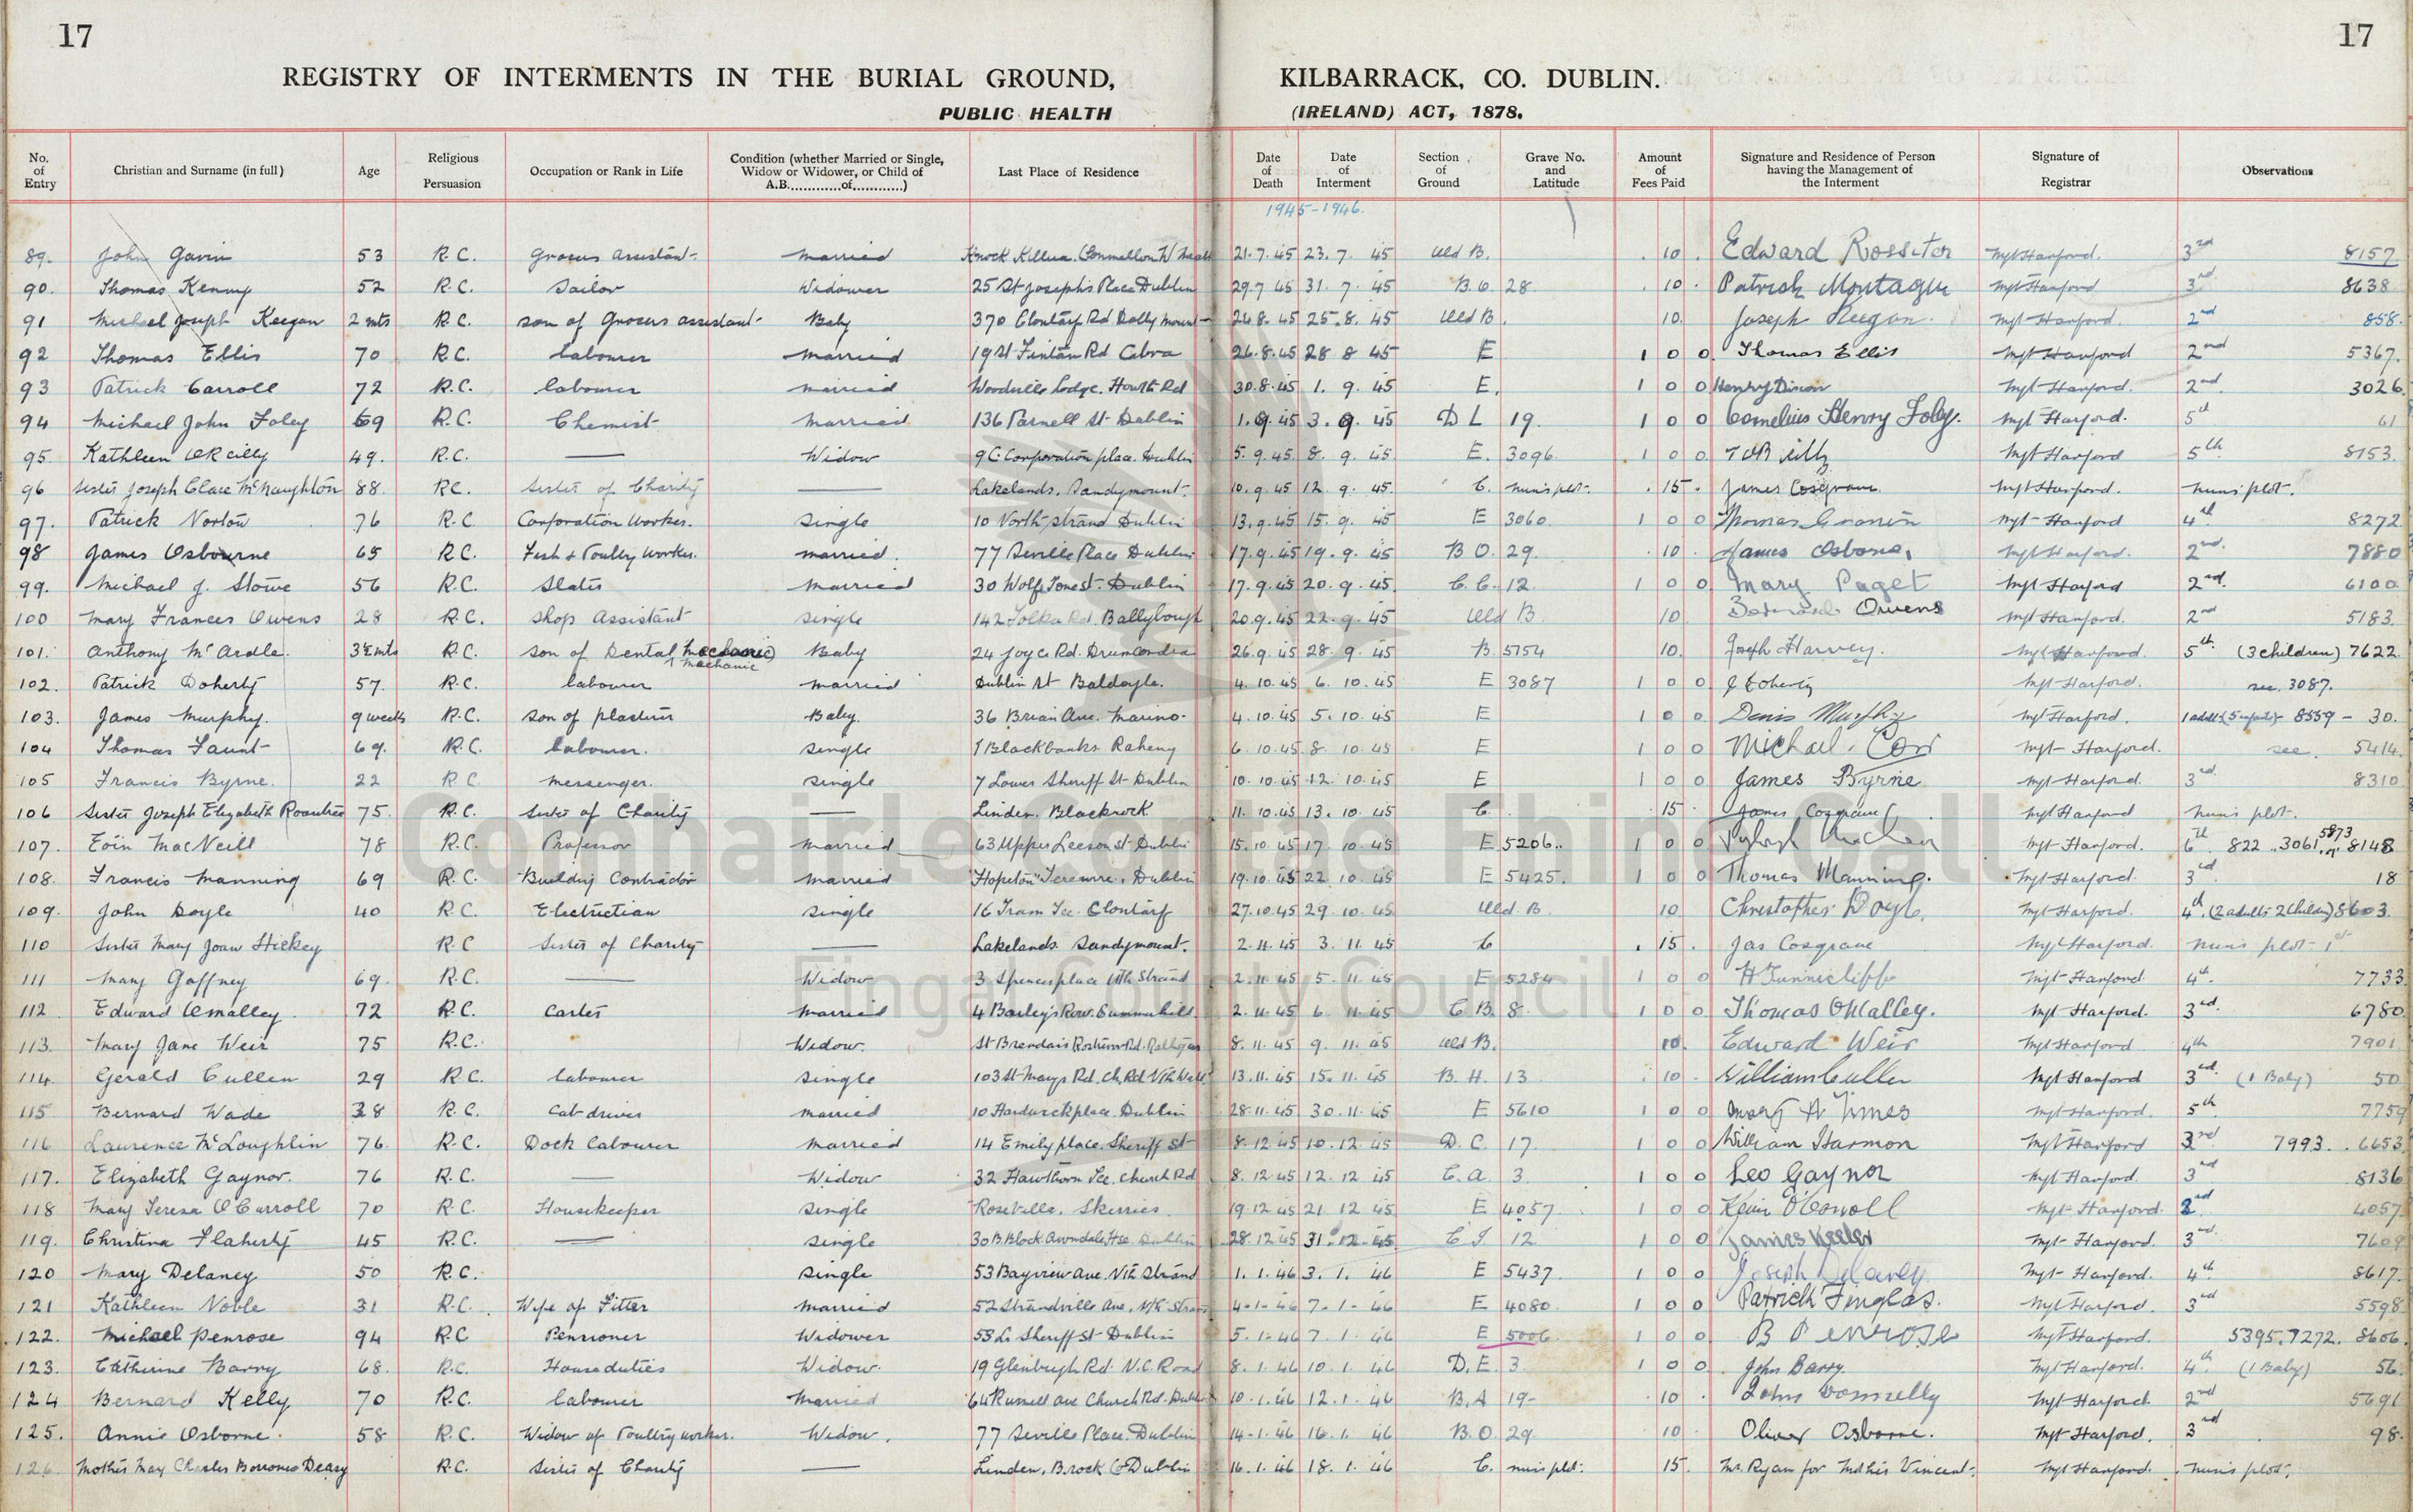 17 17
REGISTRY OF INTERMENTS IN THE BURIAL GROUND, KILBARRACK, CO. DUBLIN.
PUBLIC HEALTH (IRELAND) ACT, 1878.
No. of Entry Christian and Surname (in full) Age Religious Persuasion Occupation or Rank in Life Condition (whether Married or Single, Widow or Widower, or Child of A.B.............of............) Last Place of Residence Date of Death Date of Interment Section of Ground Grave No. and Latitude Amount of Fees Paid Signature and Residence of Person having the Management of the Interment Signature of Registrar Observations
1945-1946.
89. John Gavin 53 R.C. Grocers assistant married Knock Killua. 21.7.45 23.7.45 Old B. 10. Edward Rossiter Mgt Harford. 3rd 8157
90. Thomas Kenny 52 R.C. Sailor Widower 25 St Joseph's Place Dublin 29.7.45 31.7.45 B.O. 28 10. Patrick Montague Mgt Harford 3rd 8638
91 Michael Joseph Keegan 2 mts R.C. son of Grocers assistant Baby 370 Clontarf Rd Dollymount 24.8.45 25.8.45 Old B. 10. Joseph Keegan. Mgt Harford. 2nd 858.
92 Thomas Ellis 70 R.C. Labourer married 19 St Fintan Rd Cabra 26.8.45 28 8 45 E 1 0 0. Thomas Ellis Mgt Harford 2nd 5367.
93 Patrick Carroll 72 R.C. labourer married Woodville Lodge. Howth Rd 30.8.45 1.9.45 E. 1 0 0 Henry Dixon Mgt Harford. 2nd. 3026.
94 Michael John Foley 69 R.C. Chemist married. 136 Parnell St Dublin 1.9.45 3.9.45 D L 19. 1 0 0 Cornelius Henry Foley. Mgt Harford. 5th 61
95. Kathleen O'Reilly 49. R.C. Widow 9 C Corporation place. Dublin 5.9.45 8.9.45 E. 3096 1 0 0. Mgt Harford 5th 8153.
96 Sister Joseph Clare McNaughton 88. R.C. Sister of Charity Lakelands. Sandymount. 10.9.45 12.9.45. C. nun's plot. 15. James Cosgrave. Mgt Harford. nuns plot.
97. Patrick Norton 76 R.C Corporation Worker. single 10 North strand Dublin 13.9.45 15.9.45 E 3060 1 0 0 Thomas Cronin Mgt Harford 4th 8272
98 James Osbourne 65 R.C. Fish & Poultry Worker. married. 77 Seville Place Dublin 17.9.45 19.9.45 B O. 29. 10. James Osborne. Mgt Harford. 2nd. 7880
99. Michael J. Stowe 56 R.C. Slater married 30 Wolfe Tone St. Dublin 17.9.45 20.9.45. C.C. 12. 1 0 0 Mary Paget Mgt Harford 2nd. 6100
100 Mary Frances Owens 28 R.C. Shop Assistant single 142 Tolka Rd. Ballybough 20.9.45 22.9.45 Old B. 10. Bernard Owens Mgt Harford. 2nd 5183.
101. Anthony McArdle. 3½ mts R.C. son of Dental Mechanic Baby 24 Joyce Rd. Drumcondra 26.9.45 28.9.45 B. 5754 10. Joseph Harvey. Mgt Harford. 5th (3 children) 7622.
mechanic
102. Patrick Doherty 57. R.C. labourer married Dublin St Baldoyle. 4.10.45 6.10.45 E 3087 1 0 0 J Doherty Mgt Harford. see. 3087.
103. James Murphy. 9 weeks R.C. son of plasterer Baby. 36 Brian Ave. Marino. 4.10.45 5.10.45 E 1 0 0. Denis Murphy Mgt Harford. 8559 - 30.
104 Thomas Faunt 69. R.C. labourer. single 1 Blackbanks Raheny 6.10.45 8.10.45 E 1 0 0 Michael. Mgt Harford. see 5414.
105 Francis Byrne. 22 R C. messenger. single 7 Lower Sheriff St Dublin 10.10.45 12.10.45 E 1 0 0 James Byrne Mgt Harford. 3rd. 8310
106 Sister Joseph Elizabeth Rountree 75. R.C. Sister of Charity Linden. Blackrock 11.10.45 13.10.45 C. 15. James Cosgrave Mgt Harford nuns plot.
107. Eoin MacNeill 78 R.C. Professor married 63 Upper Leeson St Dublin 15.10.45 17.10.45 E 5206.. 1 0 0 Mgt Harford. 6th 822..3061. 5873 8148
108. Francis Manning 69 R.C. Building Contractor married "Hopeton" Terenure. Dublin 19.10.45 22.10.45 E 5425. 1 0 0 Thomas Manning. Mgt Harford. 3rd. 18
109. John Doyle 40 R.C. Electrician single 16 Tram Tce. Clontarf 27.10.45 29.10.45 Old B. 10 Christopher Doyle. Mgt Harford. 4th. (2 adults 2 Children) 8603.
110 Sister Mary Joan Hickey R.C Sister of Charity Lakelands Sandymount. 2.11.45 3.11.45 C 15. Jas Cosgrave Mgt Harford. nuns plot 1st
111 Mary Gaffney 69. R.C. Widow 3 Spencer place Nth Strand 2.11.45 5.11.45 E 5284 1 0 0 H Tunnicliffe Mgt Harford. 4th. 7733
112 Edward O'Malley 72 R.C. Carter married 4 Bailey's Row. Summerhill. 2.11.45 6.11.45 C B. 8. 1 0 0 Thomas O'Malley. Mgt Harford. 3rd. 6780
113. Mary Jane Weir 75 R.C. Widow. St Brendan's 8.11.45 9.11.45 Old B. 10. Edward Weir Mgt Harford 4th 7901
114. Gerald Cullen 29 R.C. labourer single 103 St Marys Rd. Ch. Rd. Nth Wall 13.11.45 15.11.45 B.H. 13 10. William Cullen Mgt Harford 3rd. (1 Baby) 50
115 Bernard Wade 38 R.C. Cab driver married 10 Hardwick place. Dublin 28.11.45 30.11.45 E 5610 1 0 0 Mgt Harford. 5th 7759
116 Laurence McLoughlin 76. R.C. Dock labourer married 14 Emily place. Sheriff St 8.12.45 10.12.45 D.C. 17. 1 0 0 William Harmon Mgt Harford 3rd 7993..6653
117. Elizabeth Gaynor. 76 R.C. Widow 32 Hawthorn Tce. Church Rd 8.12.45 12.12.45 C.A. 3. 1 0 0 Leo Gaynor Mgt Harford. 3rd 8136
118 Mary Teresa O'Carroll 70 R.C. Housekeeper single Roseville. Skerries. 19.12.45 21.12.45 E 4057. 1 0 0 Mgt Harford. 2nd 4057
119. Christina Flaherty 45 R.C. single 30 B. Block. Avondale Hse Dublin 28.12.45 31.12.45 12 1 0 0 James Keeler Mgt Harford. 3rd. 7609
120 Mary Delaney 50 R.C. single 53 Bayview Ave. Nth Strand 1.1.46 3.1.46 E 5437 1 0 0 Joseph Delaney Mgt Harford. 4th 8617.
121 Kathleen Noble 31 R.C. Wife of Fitter married 52 Strandville Ave, Nth Strand 4.1.46 7.1.46 E 4080 1 0 0 Patrick Finglas. Mgt Harford. 3rd 5598
122. Michael Penrose 94 R.C Pensioner Widower 53 Lr Sheriff St Dublin 5.1.46 7.1.46 E 5006 1 0 0 B Penrose Mgt Harford. 5395.7272. 8606
123. Catherine Barry 68. R.C. House duties Widow. 19 Glenbeigh Rd. N.C. Road 8.1.46 10.1.46 D.E. 3. 1 0 0 John Barry. Mgt Harford. 4th (1 Baby) 56.
124 Bernard Kelly 70 R.C. labourer married 64 Russell Ave Church Rd. Dublin 10.1.46 12.1.46 B.A 19 10. John Donnelly Mgt Harford. 2nd 5691
125. Annie Osborne. 58 R.C. Widow of Poultry worker. Widow. 77 Seville Place. Dublin 14.1.46 16.1.46 B.O. 29. 10 Oliver Osborne. Mgt Harford. 3rd 98.
126. Mother May Charles Borromeo Deasy R.C. Sister of Charity Linden. B.rock Co Dublin 16.1.46 18.1.46 C. nuns plot. 15. Mr. Ryan for Mother Vincent. Mgt Harford. nuns plot.
Comhairle Contae Fhine Gall
Fingal County Council